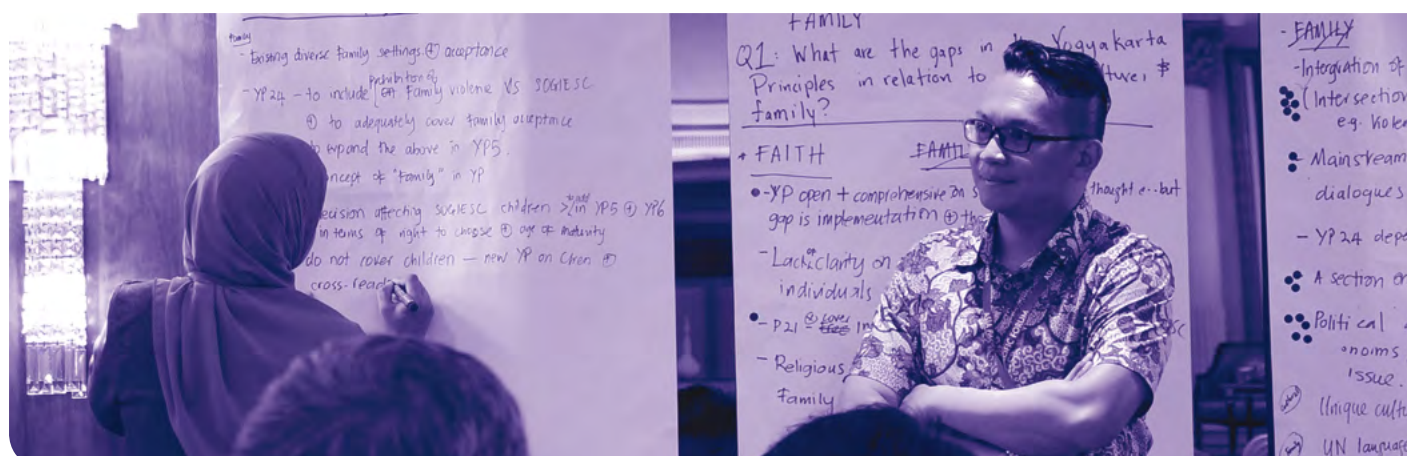 Family
- Existing diverse family settings. ⊕ acceptance
Prohibition of
- YP24 – to include family violence VS SOGIESC
⊕ to adequately cover family acceptance
to expand the above in YP5.
concept of "family" in YP
decision affecting SOGIESC children > in YP5 ⊕ YP6
in terms of right to choose ⊕ age of maturity
do not cover children — new YP on ⊕
cross-read
FAMILY
Q1: What are the gaps in Yogyakarta
Principles in relation to
family?
+ FAITH
- YP open + comprehensive on thought but
gap is implementation ⊕
- Lack of clarity on
individuals
- P21 ⊕ cover
- Religious
Family
- FAMILY
- of
(Intersection
e.g.
- Mainstream
dialogues
- YP 24
- A section on
Political
issue.
Unique
UN language